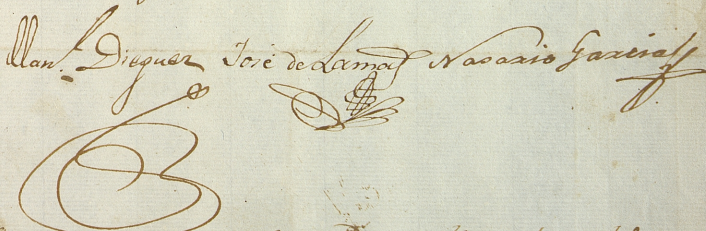 Man.l Dieguez José de Lamas Nasario Garcia